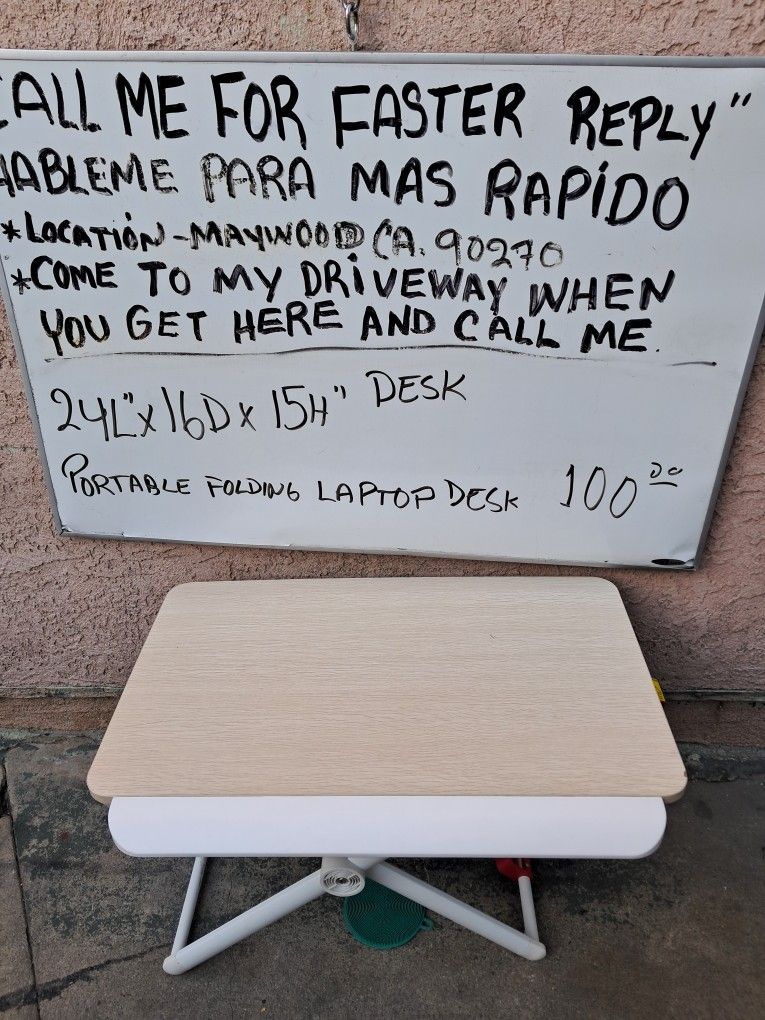 CALL ME FOR FASTER REPLY"
HABLEME PARA MAS RAPIDO
*LOCATIÓN-MAYWOOD CA. 90270
*COME TO MY DRIVEWAY WHEN
YOU GET HERE AND CALL ME.
24L"x16Dx15H" DESK
PORTABLE FOLDING LAPTOP DESK 100 00